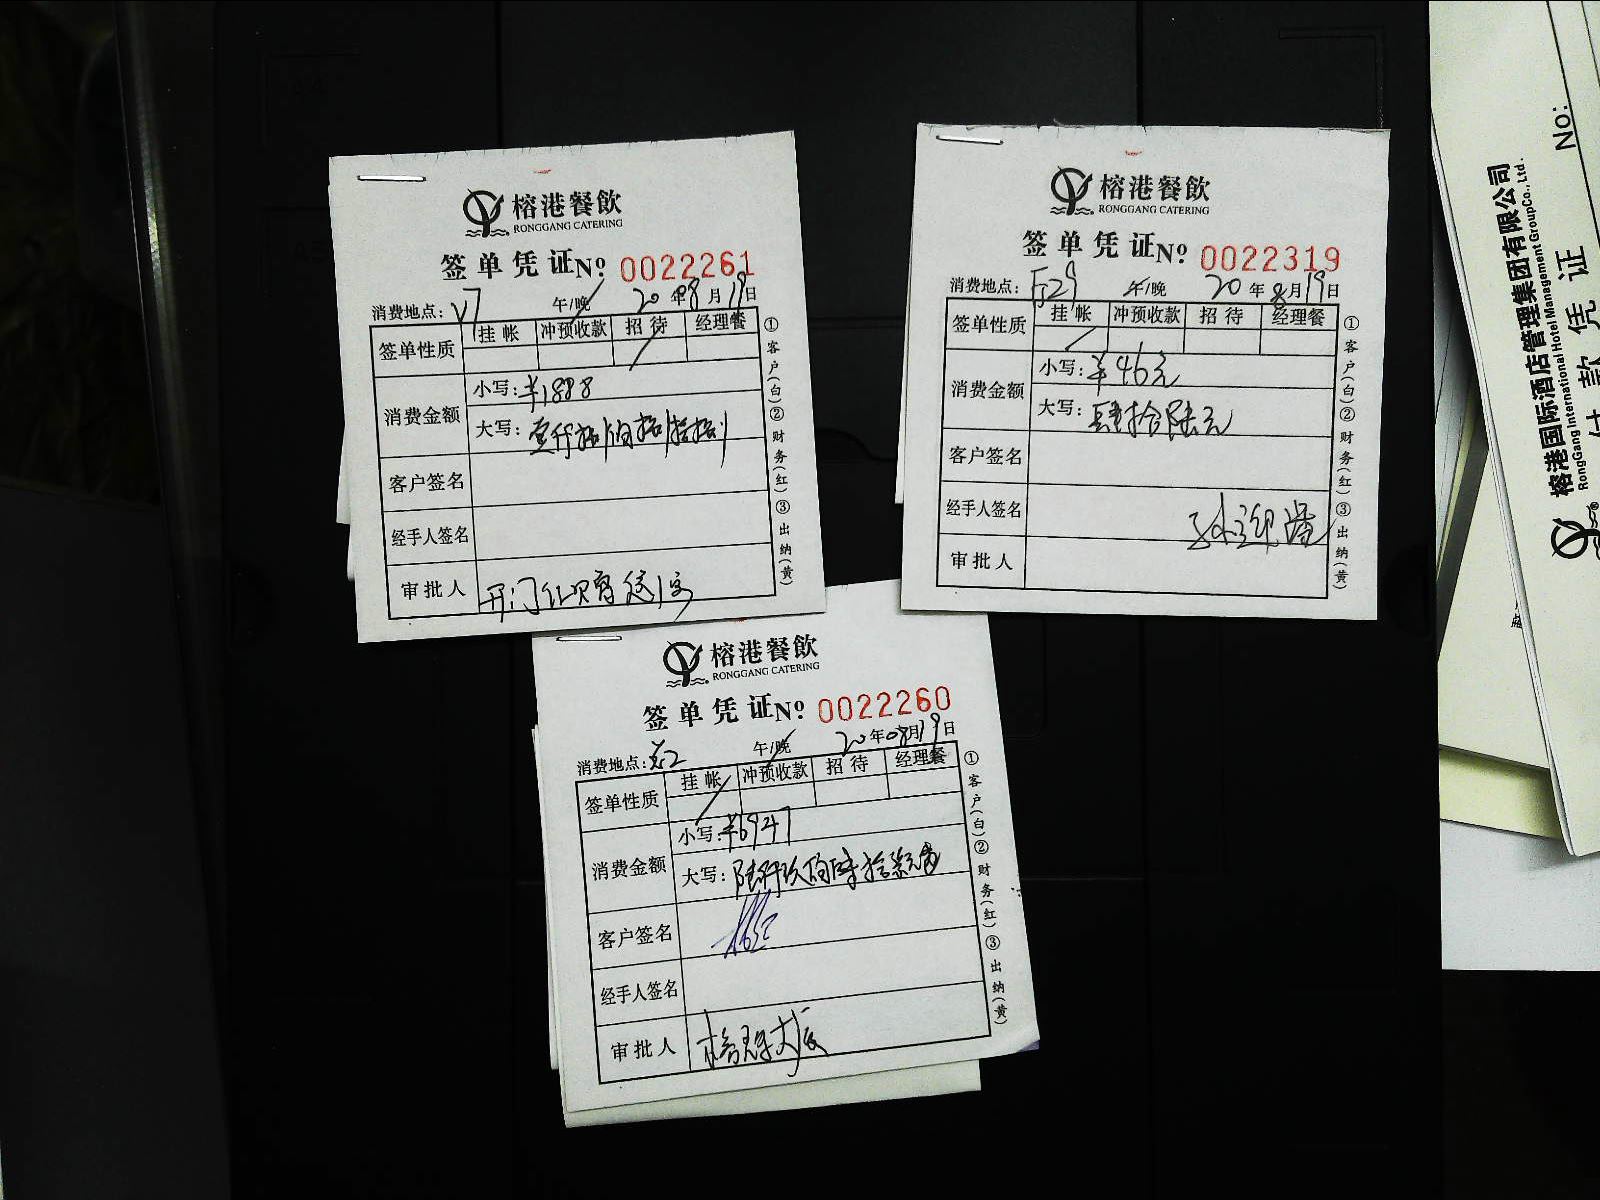 榕港餐飲
RONGGANG CATERING
签单凭证 Nº 0022261
消费地点: V7 午/晚 20年08月19日
签单性质 挂帐 冲预收款 招待 经理餐
消费金额 小写: ¥1888
大写: 壹仟捌佰捌拾捌
客户签名
经手人签名
审批人
①客户(白)②财务(红)③出纳(黄)
榕港餐飲
RONGGANG CATERING
签单凭证 Nº 0022319
消费地点: 厅29 午/晚 20年8月19日
签单性质 挂帐 冲预收款 招待 经理餐
消费金额 小写: ¥46元
大写: 肆拾陆元
客户签名
经手人签名
审批人
①客户(白)②财务(红)③出纳(黄)
榕港餐飲
RONGGANG CATERING
签单凭证 Nº 0022260
消费地点: 午/晚 20年08月19日
签单性质 挂帐 冲预收款 招待 经理餐
消费金额 小写: ¥6947
大写: 陆仟玖佰肆拾柒元
客户签名
经手人签名
审批人
①客户(白)②财务(红)③出纳(黄)
榕港国际酒店管理集团有限公司
RongGang International Hotel Management GroupCo., Ltd.
付款凭证 No: